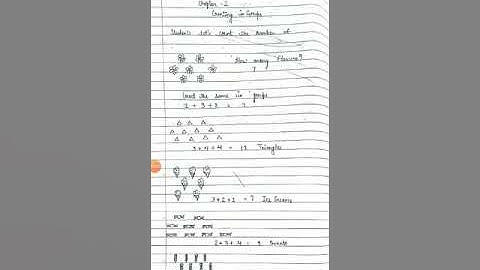 Chapter - 2
Counting in Groups
Students let's count the number of
"How many flowers"?
7
Count the same in groups
2 + 3 + 2 = 7
3 + 4 + 4 = 11 Triangles
3 + 2 + 2 = 7 Ice Creams
2 + 3 + 4 = 9 Sweets